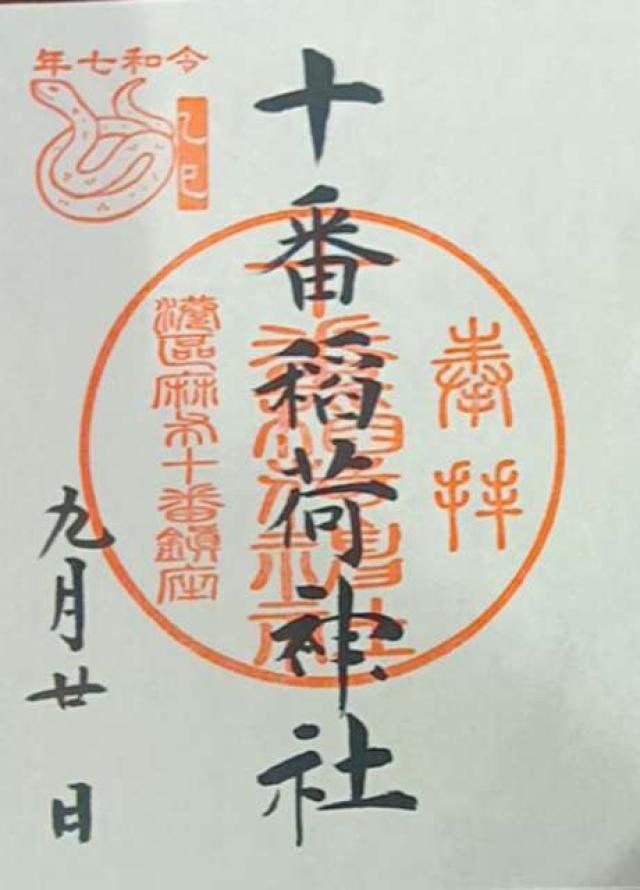 令和七年
乙巳
奉拝
十番稲荷神社
港區麻布十番鎮座
九月廿日